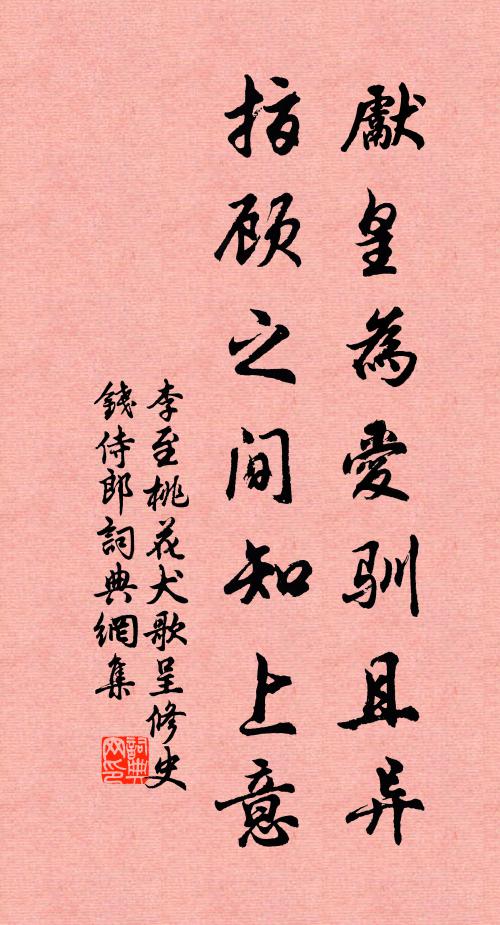 獻皇為愛馴且异
指顾之间知上意
李至桃花犬歌呈修史
錢侍郎詞典網集
詞典
网印